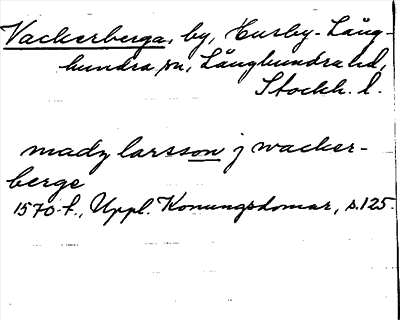 Vackerberga, by, Husby-Lång-
hundra sn, Långhundra hd,
Stockh. l.
madz larsson j wacker-
berge
1570-t., Uppl. Konungsdomar, s. 125.